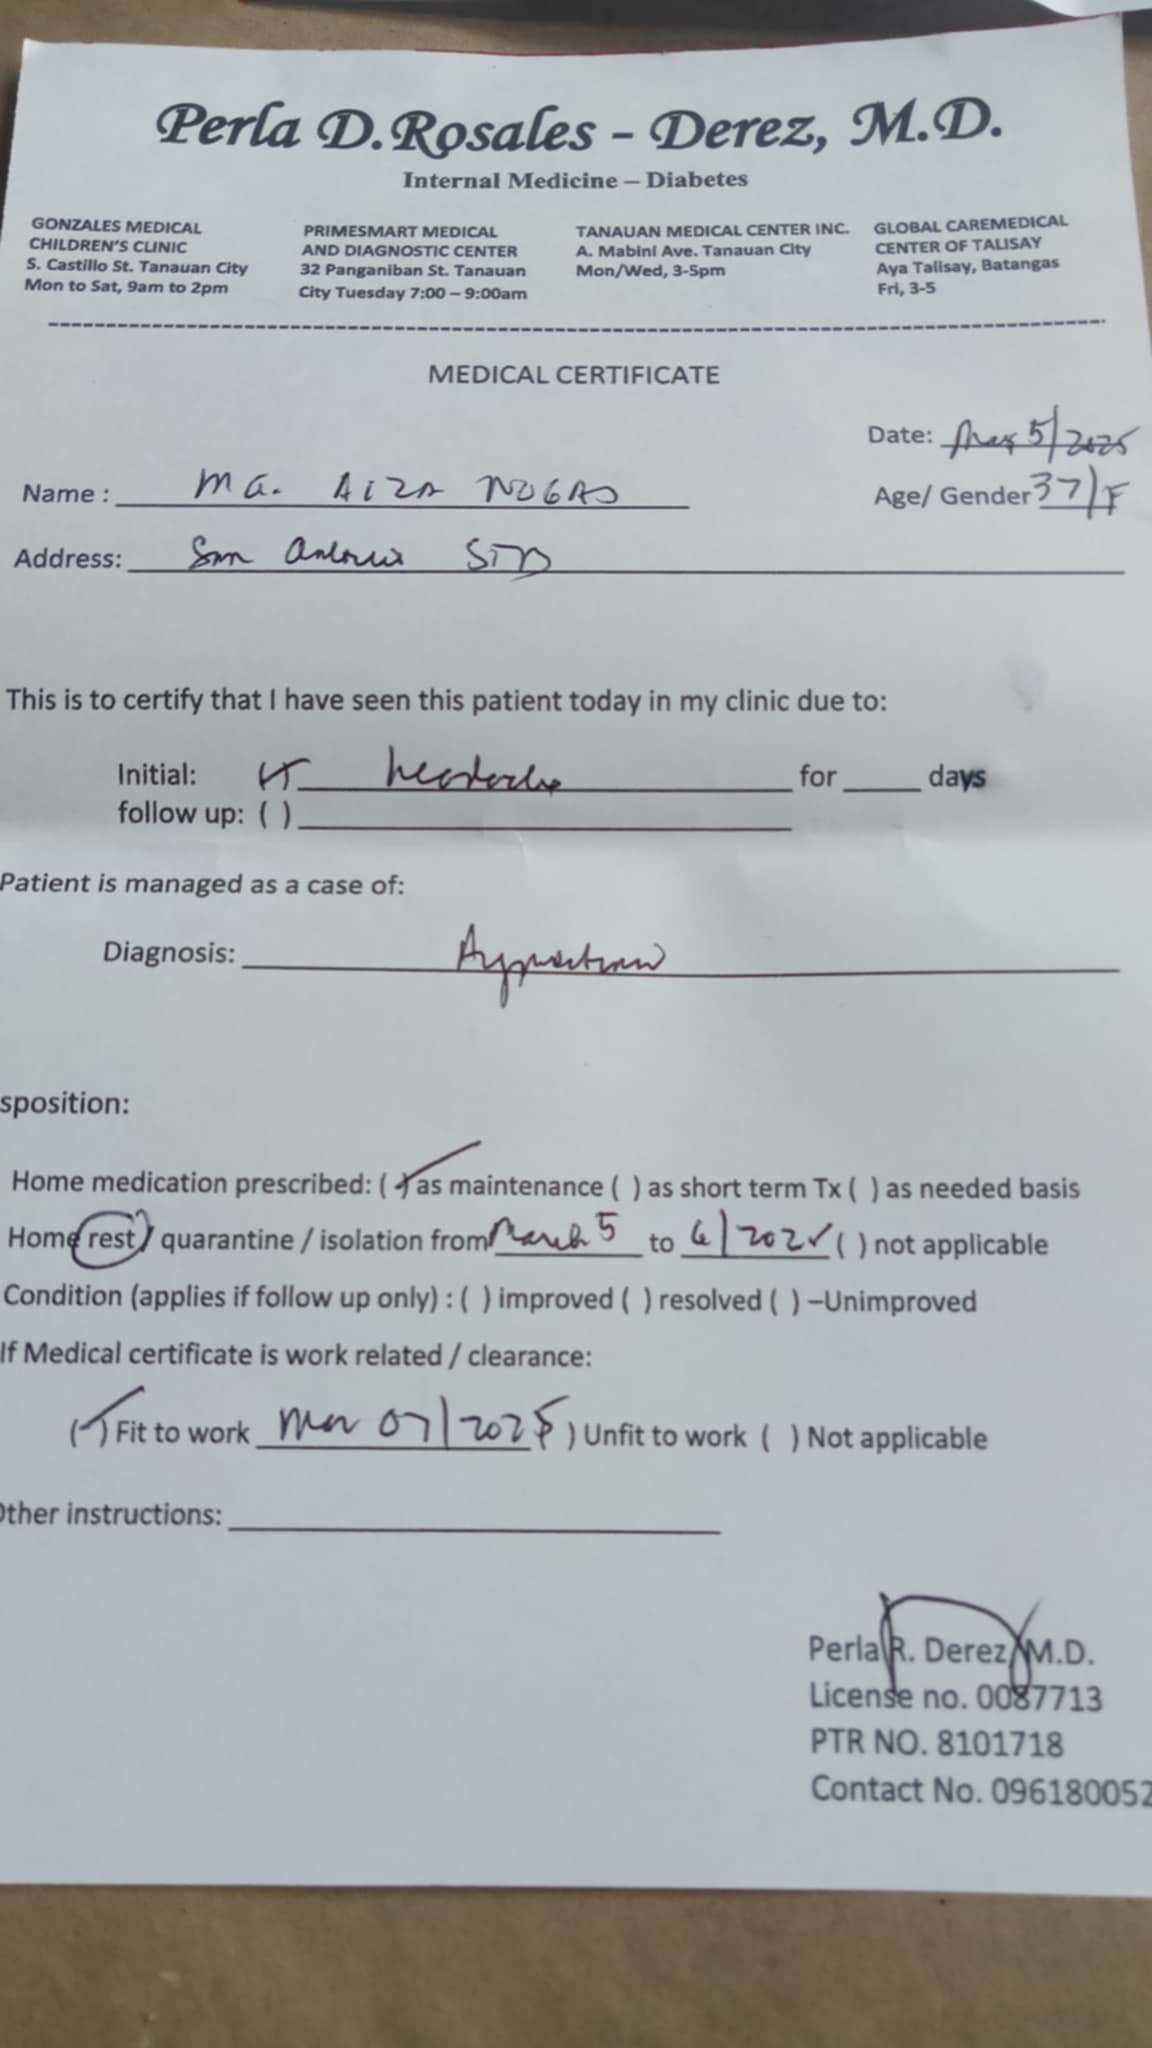 Perla D. Rosales - Derez, M.D.
Internal Medicine – Diabetes
GONZALES MEDICAL
CHILDREN'S CLINIC
S. Castillo St. Tanauan City
Mon to Sat, 9am to 2pm
PRIMESMART MEDICAL
AND DIAGNOSTIC CENTER
32 Panganiban St. Tanauan
City Tuesday 7:00 – 9:00am
TANAUAN MEDICAL CENTER INC.
A. Mabini Ave. Tanauan City
Mon/Wed, 3-5pm
GLOBAL CAREMEDICAL
CENTER OF TALISAY
Aya Talisay, Batangas
Fri, 3-5
MEDICAL CERTIFICATE
Date: 5/2025
Name : MA. AIZA NOGAS
Age/ Gender 37/F
Address: San Antonio
This is to certify that I have seen this patient today in my clinic due to:
Initial: headache for ____ days
follow up: ( )
Patient is managed as a case of:
Diagnosis: Hypertension
sposition:
Home medication prescribed: (✓) as maintenance ( ) as short term Tx ( ) as needed basis
Home rest / quarantine / isolation from March 5 to 6/2025 ( ) not applicable
Condition (applies if follow up only) : ( ) improved ( ) resolved ( ) –Unimproved
If Medical certificate is work related / clearance:
(✓) Fit to work Mar 07/2025 ) Unfit to work ( ) Not applicable
Other instructions:
Perla R. Derez, M.D.
License no. 0087713
PTR NO. 8101718
Contact No. 096180052